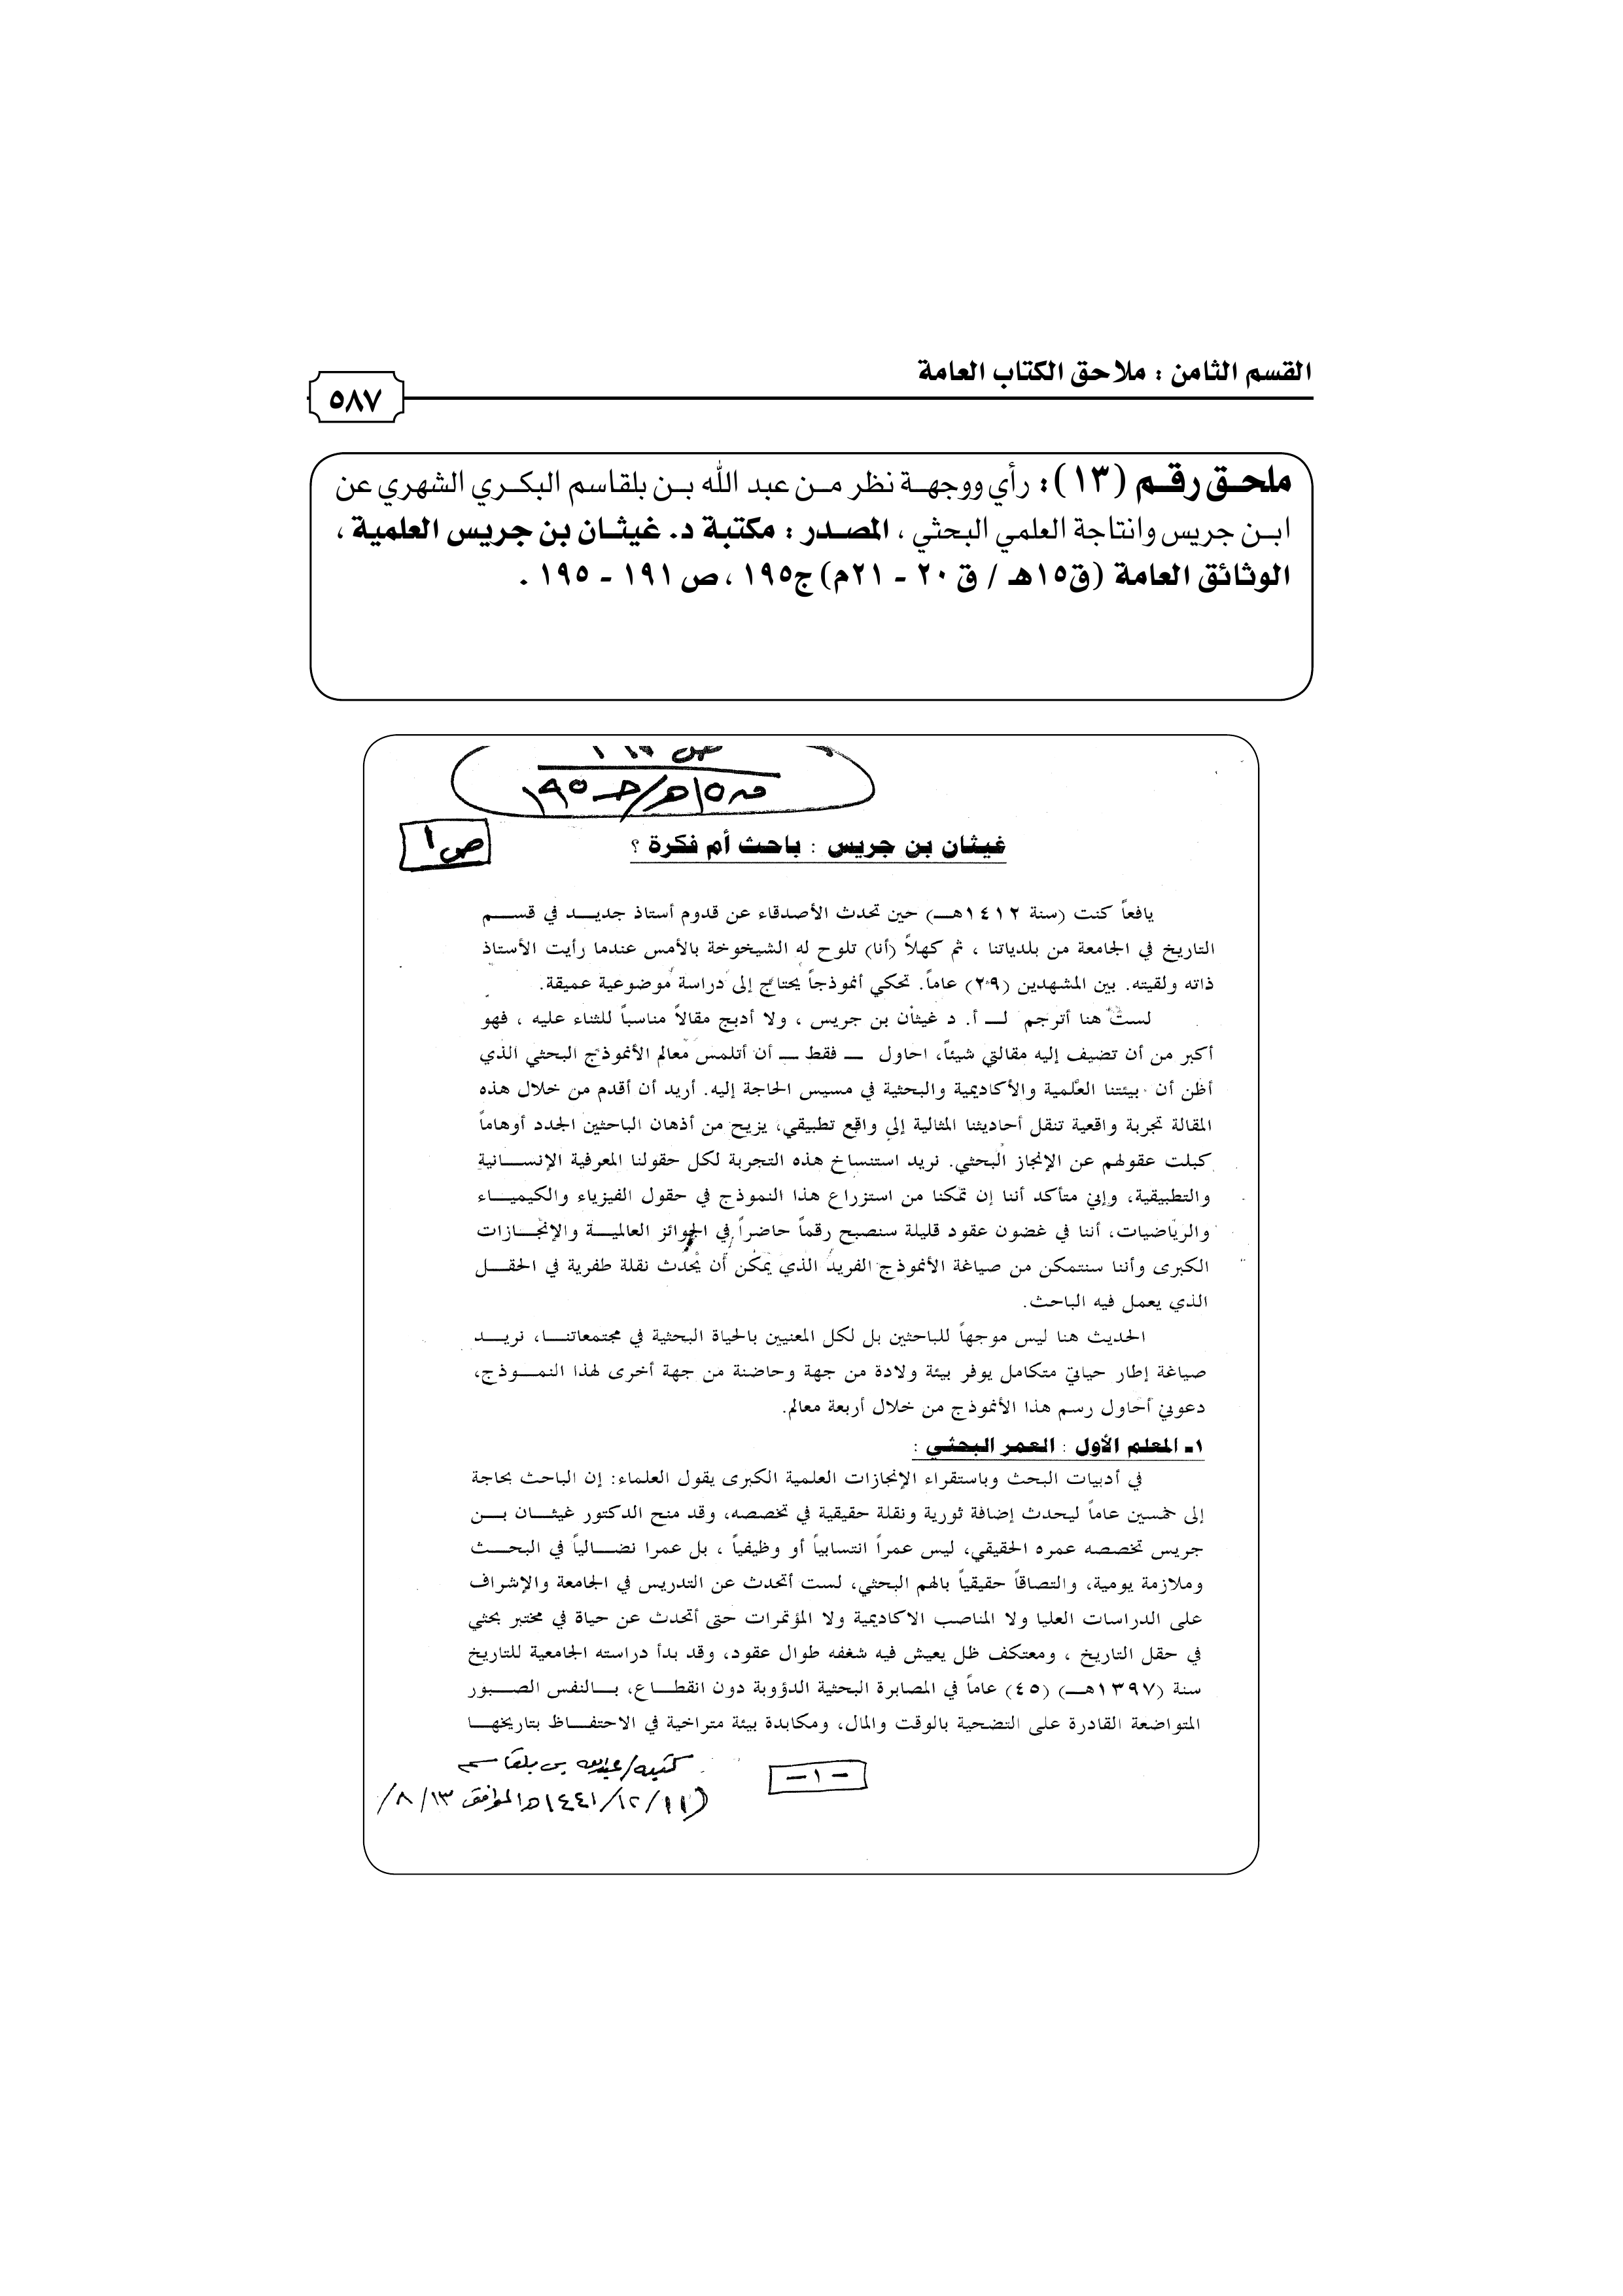 القسم الثامن : ملاحق الكتاب العامة
٥٨٧
ملحـق رقـم (١٣): رأي ووجهـة نظر مـن عبد الله بـن بلقاسم البكـري الشهري عن
ابـن جريس وانتاجة العلمي البحثي ، المصـدر : مكتبة د. غيثـان بن جريس العلمية ،
الوثائق العامة (ق١٥هـ / ق ٢٠ - ٢١م) ج١٩٥ ، ص ١٩١ - ١٩٥ .
ق١٥هـ/جـ١٩٥
ص١
غيثان بن جريس : باحث أم فكرة ؟
يافعاً كنت (سنة ١٤١٢هـ) حين تحدث الأصدقاء عن قدوم أستاذ جديـد في قسـم
التاريخ في الجامعة من بلدياتنا ، ثم كهلاً (أنا) تلوح له الشيخوخة بالأمس عندما رأيت الأستاذ
ذاته ولقيته. بين المشهدين (٢٩) عاماً. تحكي أنموذجاً يحتاج إلى دراسة موضوعية عميقة.
لست هنا أترجم لـ أ. د غيثان بن جريس ، ولا أدبج مقالاً مناسباً للثناء عليه ، فهو
أكبر من أن تضيف إليه مقالتي شيئاً، احاول ـ فقط ـ أن أتلمس معالم الأنموذج البحثي الذي
أظن أن بيئتنا العلمية والأكاديمية والبحثية في مسيس الحاجة إليه. أريد أن أقدم من خلال هذه
المقالة تجربة واقعية تنقل أحاديثنا المثالية إلى واقع تطبيقي، يزيح من أذهان الباحثين الجدد أوهاماً
كبلت عقولهم عن الإنجاز البحثي. نريد استنساخ هذه التجربة لكل حقولنا المعرفية الإنسـانية
والتطبيقية، وإني متأكد أننا إن تمكنا من استزراع هذا النموذج في حقول الفيزياء والكيميـاء
والرياضيات، أننا في غضون عقود قليلة سنصبح رقماً حاضراً في الجوائز العالميـة والإنجـازات
الكبرى وأننا سنتمكن من صياغة الأنموذج الفريد الذي يمكن أن يحدث نقلة طفرية في الحقـل
الذي يعمل فيه الباحث.
الحديث هنا ليس موجهاً للباحثين بل لكل المعنيين بالحياة البحثية في مجتمعاتنـا، نريـد
صياغة إطار حياتي متكامل يوفر بيئة ولادة من جهة وحاضنة من جهة أخرى لهذا النمـوذج،
دعوني أحاول رسم هذا الأنموذج من خلال أربعة معالم.
١ـ المعلم الأول : العمر البحثي :
في أدبيات البحث وباستقراء الإنجازات العلمية الكبرى يقول العلماء: إن الباحث بحاجة
إلى خمسين عاماً ليحدث إضافة ثورية ونقلة حقيقية في تخصصه، وقد منح الدكتور غيثـان بـن
جريس تخصصه عمره الحقيقي، ليس عمراً انتسابياً أو وظيفياً ، بل عمرا نضـالياً في البحـث
وملازمة يومية، والتصاقاً حقيقياً بالهم البحثي، لست أتحدث عن التدريس في الجامعة والإشراف
على الدراسات العليا ولا المناصب الاكاديمية ولا المؤتمرات حتى أتحدث عن حياة في مختبر بحثي
في حقل التاريخ ، ومعتكف ظل يعيش فيه شغفه طوال عقود، وقد بدأ دراسته الجامعية للتاريخ
سنة (١٣٩٧هـ) (٤٥) عاماً في المصابرة البحثية الدؤوبة دون انقطـاع، بـالنفس الصـبور
المتواضعة القادرة على التضحية بالوقت والمال، ومكابدة بيئة متراخية في الاحتفـاظ بتاريخهـا
-١-
كتبه/عبدالله بن بلقاسم
(١١/١٢/١٤٤١هـ الموافق ١٣/٨/